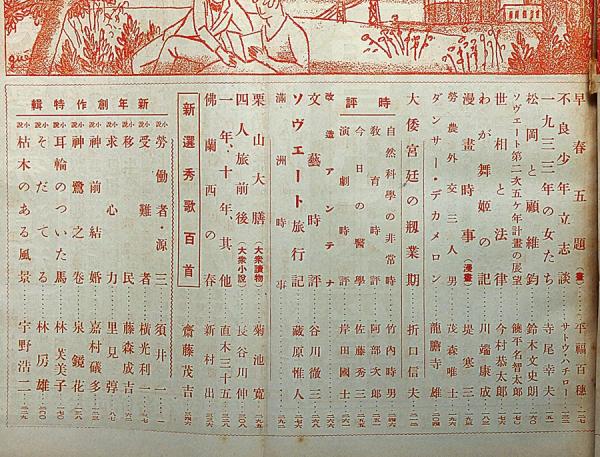 早春五題(畫) 平福百穗 一二七
不良少年立志談 サトウハチロー 一三二
一九三三年の女たち 寺尾幸夫 一五一
松岡と顧維鈞 鈴木文史朗 一六〇
ソヴェート第二次五ケ年計畫の展望 熊平名智太郎
世相と法律 今村恭太郎
わが舞姬の記 川端康成 一八三
漫畫時事(漫畫) 堤寒三
勞農外交三人男 茂森唯士
ダンサー・デカメロン 龍膽寺雄 二〇四
大倭宮廷の剏業期 折口信夫
時評
自然科學の非常時 竹內時男
敎育時評 阿部次郎
今日の醫學 佐藤秀三
演劇時評 岸田國士
改造アンテナ
文藝時評 谷川徹三
ソヴェート旅行記 藏原惟人
滿洲時事
栗山大膳(大衆讀物) 菊池寬
四人旅前後(大衆小說) 長谷川伸
一年、十年、其他 直木三十五
佛蘭西の春 新村出
新選秀歌百首 齋藤茂吉
新年創作特輯
小說 勞働者・源三 須井一
小說 受難者 橫光利一
小說 移民 藤森成吉
小說 求心力 里見弴
小說 神前結婚 嘉村礒多
小說 神鷺之卷 泉鏡花
小說 耳輪のついた馬 林芙美子
小說 そだてる 林房雄
小說 枯木のある風景 宇野浩二